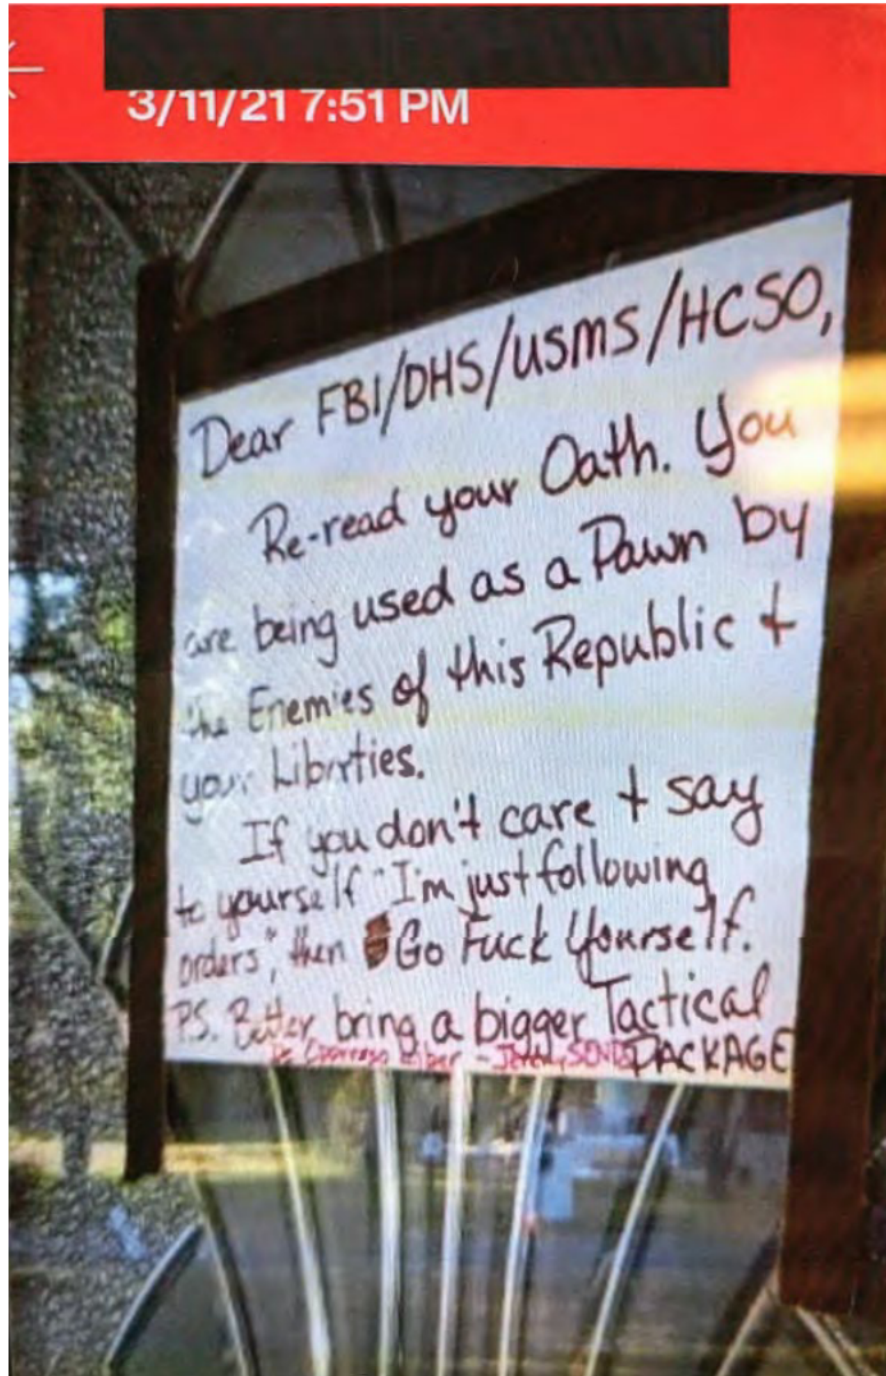 3/11/21 7:51 PM
Dear FBI/DHS/USMS/HCSO,
Re-read your Oath. You
are being used as a Pawn by
the Enemies of this Republic +
your Liberties.
If you don't care + say
to yourself "I'm just following
orders", then Go Fuck Yourself.
P.S. Better bring a bigger Tactical
PACKAGE
De Oppresso Liber - Jeremy SENDS